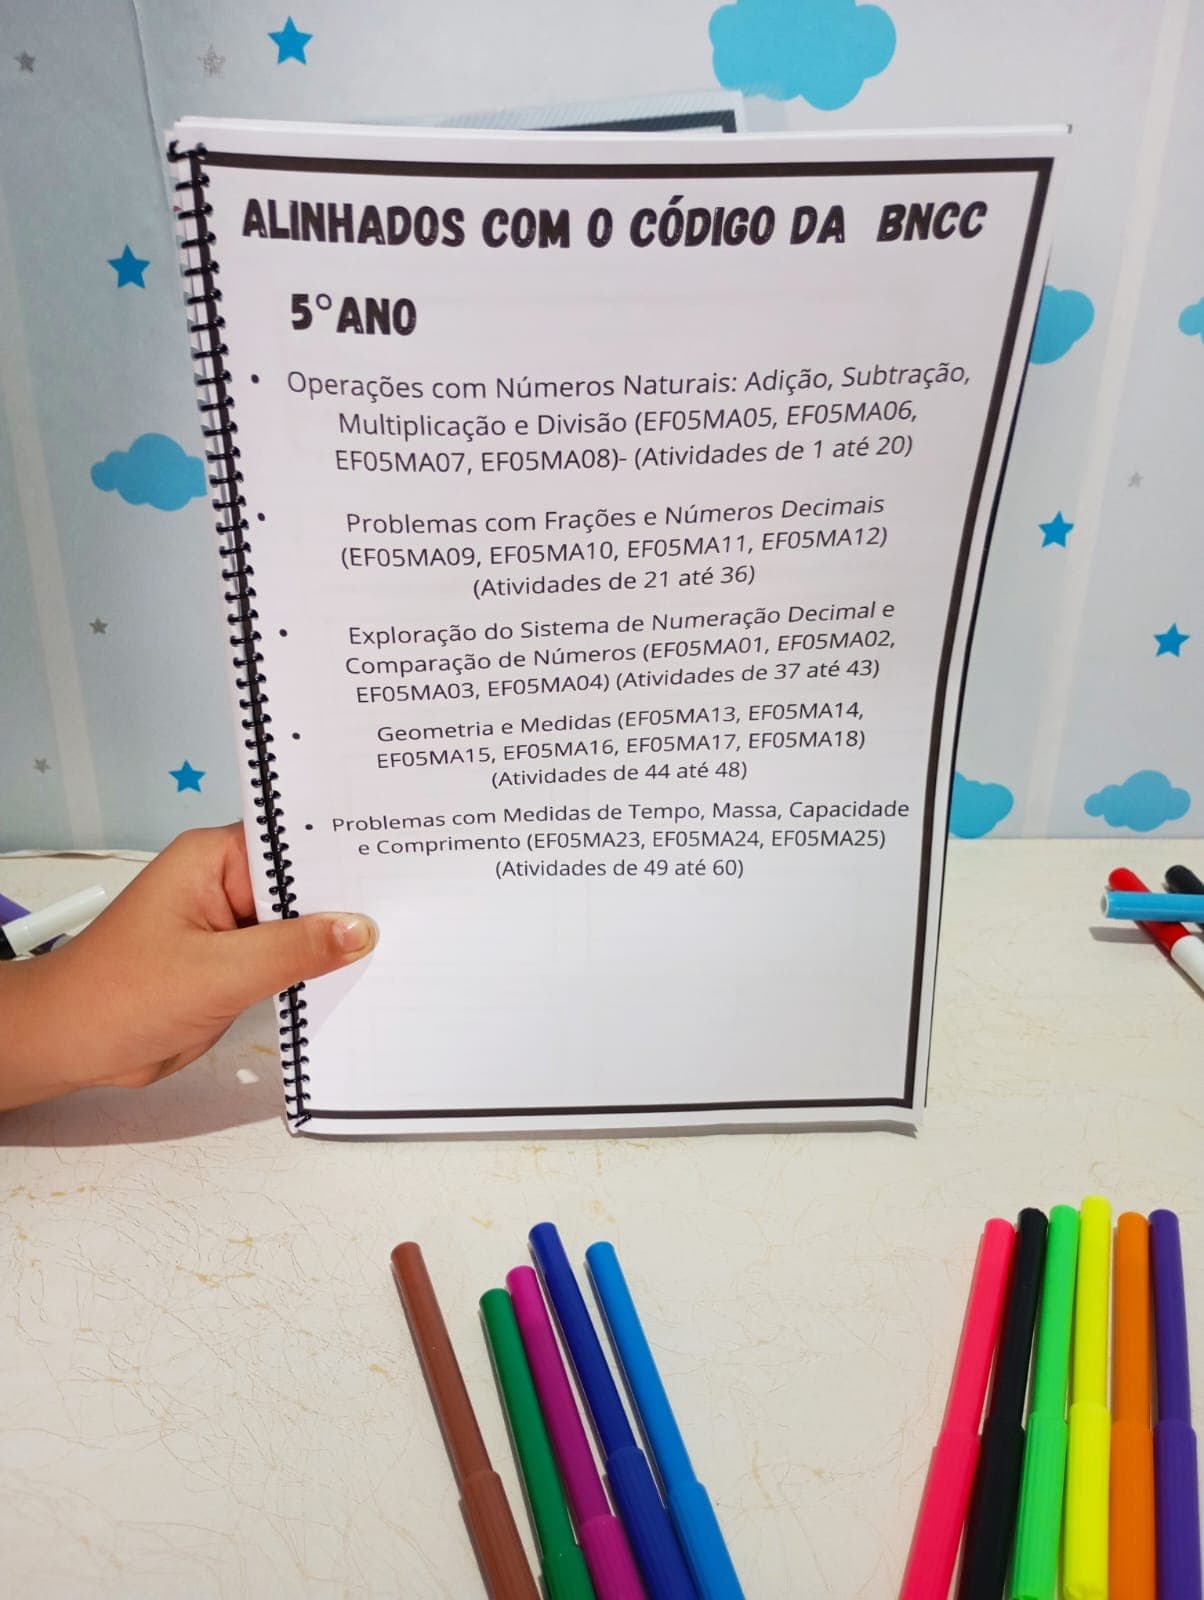 ALINHADOS COM O CÓDIGO DA BNCC
5° ANO
• Operações com Números Naturais: Adição, Subtração,
Multiplicação e Divisão (EF05MA05, EF05MA06,
EF05MA07, EF05MA08)- (Atividades de 1 até 20)
• Problemas com Frações e Números Decimais
(EF05MA09, EF05MA10, EF05MA11, EF05MA12)
(Atividades de 21 até 36)
• Exploração do Sistema de Numeração Decimal e
Comparação de Números (EF05MA01, EF05MA02,
EF05MA03, EF05MA04) (Atividades de 37 até 43)
• Geometria e Medidas (EF05MA13, EF05MA14,
EF05MA15, EF05MA16, EF05MA17, EF05MA18)
(Atividades de 44 até 48)
• Problemas com Medidas de Tempo, Massa, Capacidade
e Comprimento (EF05MA23, EF05MA24, EF05MA25)
(Atividades de 49 até 60)